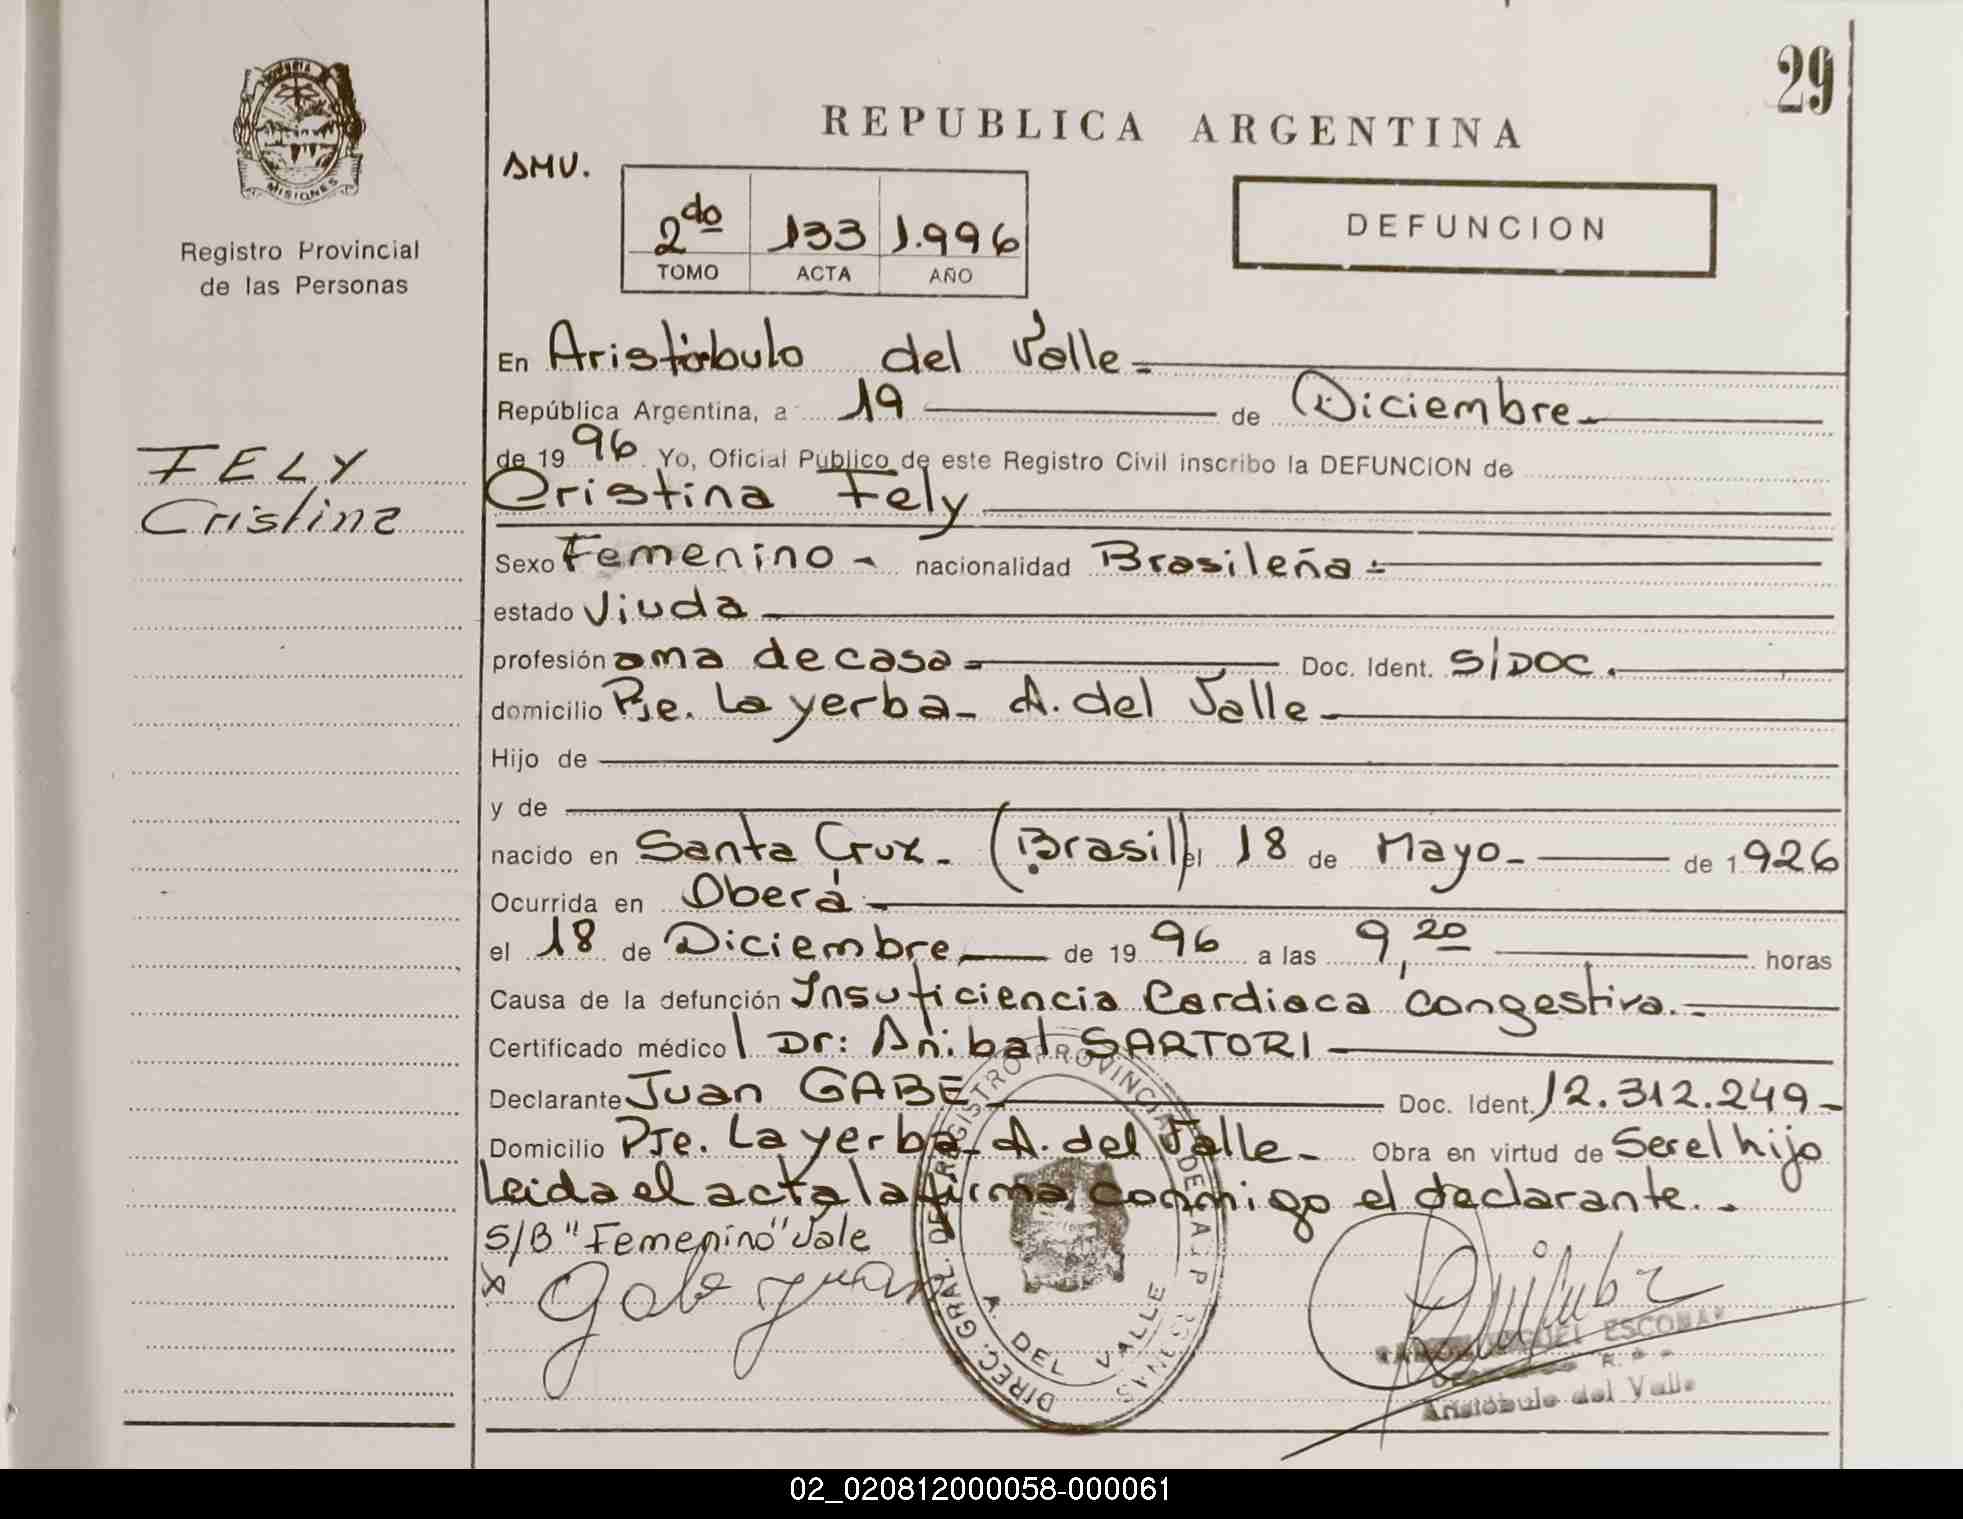 29
MISIONES
REPUBLICA ARGENTINA
AMV.
2do 133 1.996
TOMO ACTA AÑO
DEFUNCION
Registro Provincial
de las Personas
FELY
Cristina
En Aristóbulo del Valle=
República Argentina, a 19 de Diciembre-
de 1996 Yo, Oficial Público de este Registro Civil inscribo la DEFUNCION de
Cristina Fely
Sexo Femenino - nacionalidad Brasileña =
estado Viuda
profesión ama de casa = Doc. Ident. S/DOC.
domicilio Pje. La yerba - A. del Valle -
Hijo de
y de
nacido en Santa Crux. (Brasil) el 18 de Mayo - de 1926
Ocurrida en Oberá
el 18 de Diciembre de 1996 a las 9,20 horas
Causa de la defunción Insuficiencia Cardiaca congestiva.-
Certificado médico Dr: Anibal SARTORI
Declarante Juan GABE Doc. Ident. 12.312.249-
Domicilio Pje. La yerba - A. del Valle - Obra en virtud de Ser el hijo
Leida el acta la firma conmigo el declarante. -
S/B "Femenino" Vale
x Gabe Juan
DIREC. GRAL. DEL REGISTRO PROVINCIAL DE LAS PERSONAS
A. DEL VALLE
ESCOBAR
Aristóbulo del Valle
02_020812000058-000061